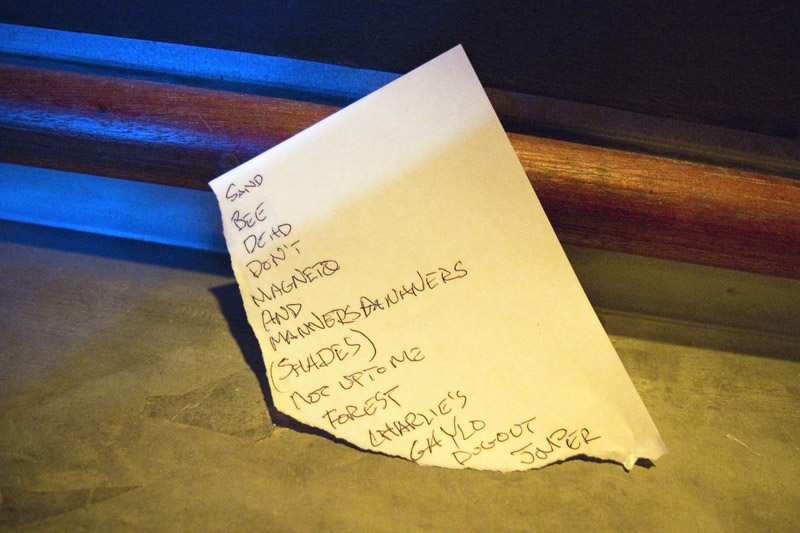 SAND
BEE
DEAD
DON'T
MAGNETO
AND
MANNERSBANANERS
(SHADES)
NOT UP TO ME
FOREST
CHARLIE'S
GAYLO
DOGOUT JONPER